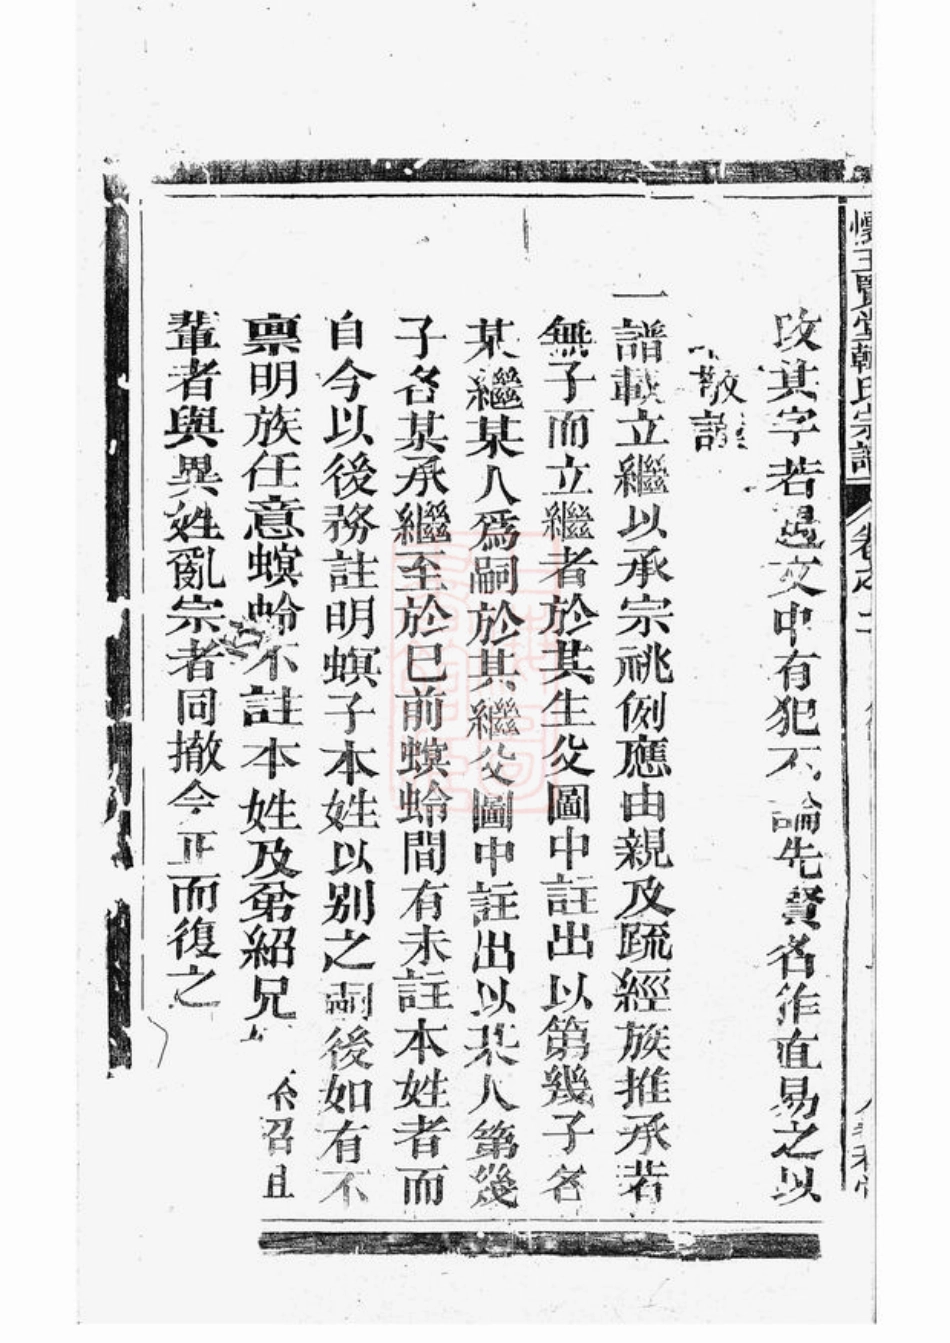 賢堂韓氏宗譜
改其字若遇文中有犯不論先賢名作直易之以
敬謹
一譜載立繼以承宗祧例應由親及疏經族推承若
無子而立繼者於其生父圖中註出以第幾子名
某繼某人爲嗣於其繼父圖中註出以某人第幾
子名某承繼至於已前螟蛉間有未註本姓者而
自今以後務註明螟子本姓以別之嗣後如有不
禀明族任意螟蛉不註本姓及弟紹兄
紹且
輩者與異姓亂宗者同撤今正而復之